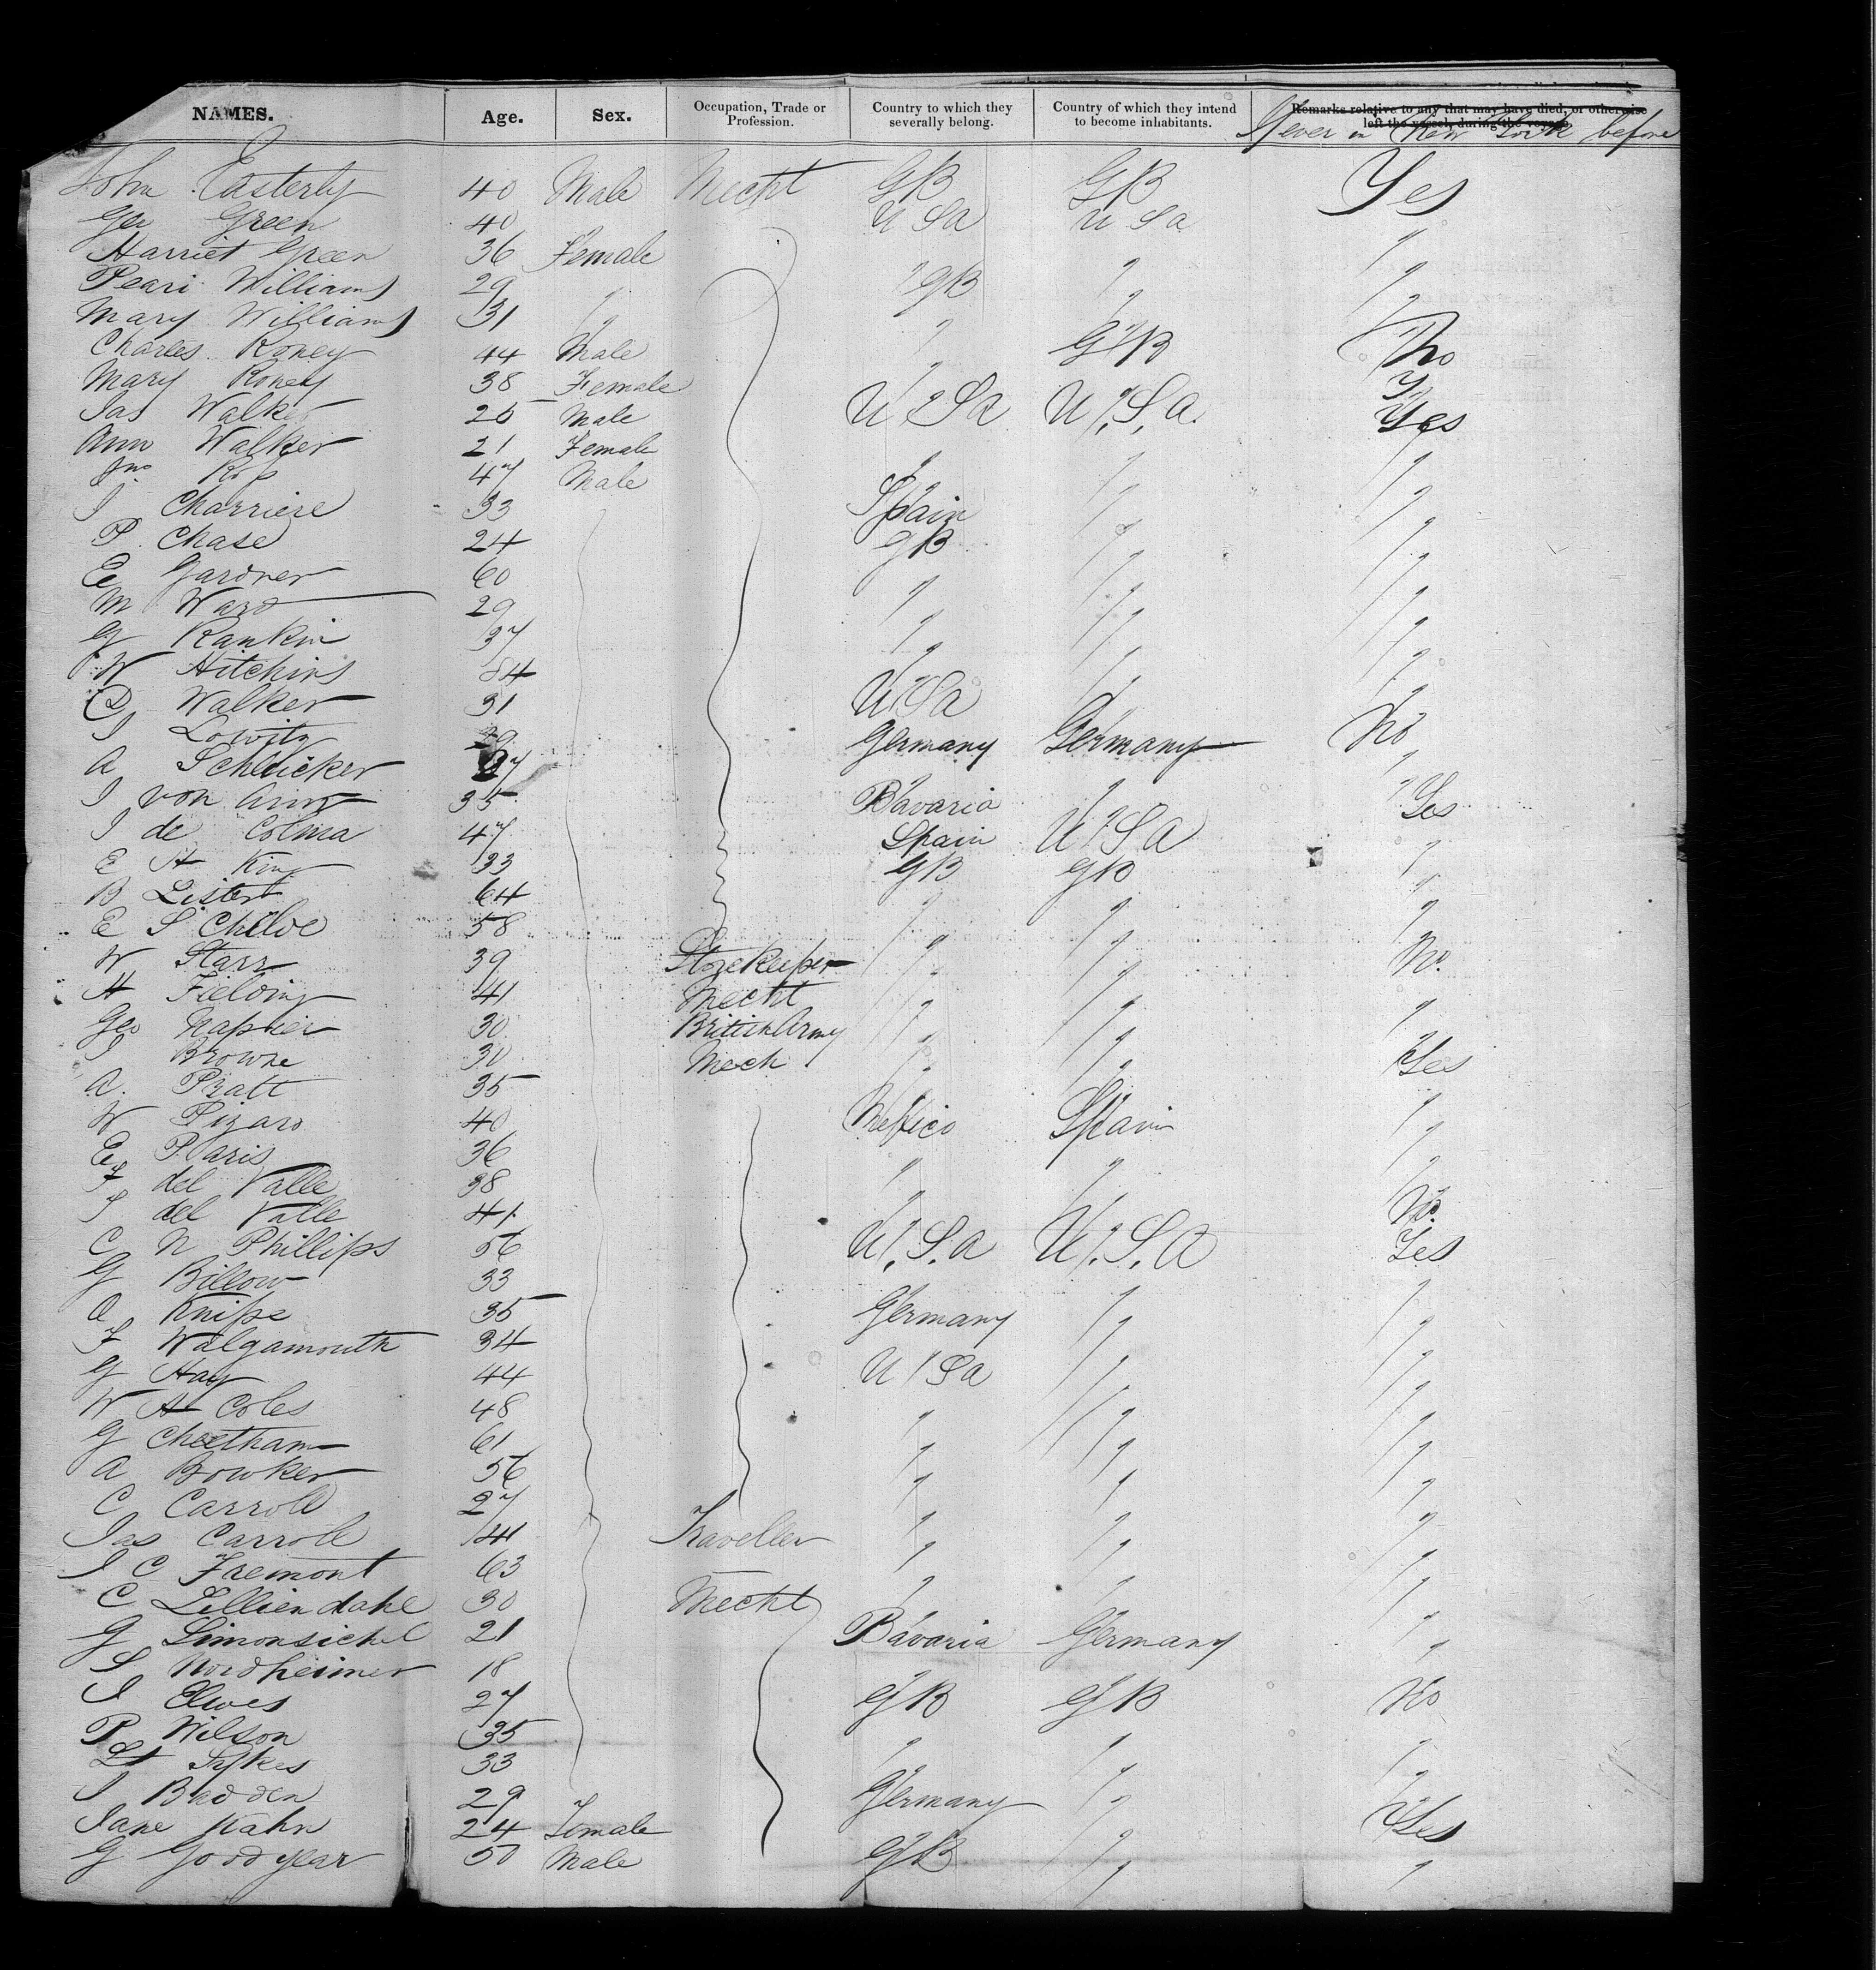 NAMES. Age. Sex. Occupation, Trade or Profession. Country to which they severally belong. Country of which they intend to become inhabitants. Remarks relative to any that may have died, or otherwise left the vessel, during the voyage.
Ever in New York before
John Easterly 40 Male Mecht GB GB Yes
Geo Green 40 U S a U S a
Harriet Green 36 Female " " "
Pearl Williams 29 " GB " "
Mary Williams 31 " " " "
Charles Roney 44 Male " GB No
Mary Roney 38 Female " " "
Jas Walker 25 Male U S a U.S,a. Yes
Ann Walker 21 Female " " "
Jno 47 Male " " "
J Charriere 33 Spain " "
P. Chase 24 GB " "
E Gardner 60 " " "
M Ward 29 " " "
G Rankin 37 " " "
W Hitchins 34 " " "
D Walker 31 U S a " "
J Lowitz 29 Germany Germany No
A Schlicker 27 " " "
J von 35 Bavaria " Yes
J de Colma 47 Spain U S a "
E H King 33 GB GB "
B Lister 64 " " "
E S Childe 58 " " "
W Starr 39 Storekeeper " " No.
H Fielding 41 Mecht " " "
Geo Napier 30 British Army " " "
J Browne 30 Mech " " Yes
A. Pratt 35 " " "
W Pizaro 40 Mexico Spain "
E Paris 36 " " "
F del Valle 38 " " "
J del Valle 41 " " No.
C N Phillips 56 U.S.a U.S.a Yes
G Billow 33 " " "
A Knipe 35 Germany " "
F Walgamouth 34 " " "
G Hay 44 U S a " "
W H Coles 48 " " "
G Cheetham 61 " " "
A Bowker 56 " " "
C Carroll 27 " " "
Jas Carroll 41 Traveller " " "
J C Fremont 63 " " "
C Lilliendahl 30 Mecht " " "
G Simonsichel 21 Bavaria Germany "
S Nordheimer 18 " " "
J Elwes 27 GB GB No
P Wilson 35 " " "
Lt Sykes 33 " " "
J Badden 29 Germany " "
Jane Kahn 24 Female " " Yes
G Goodyear 50 Male GB " "